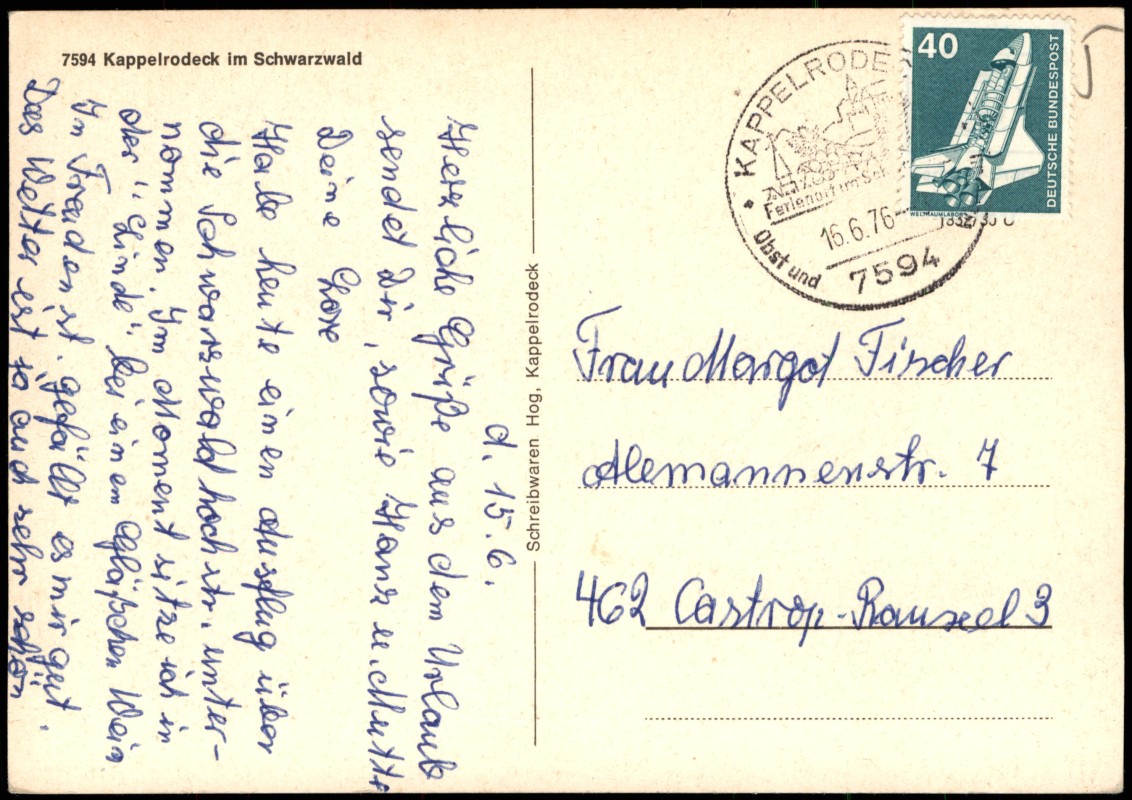 7594 Kappelrodeck im Schwarzwald
d. 15.6.
Herzliche Grüße aus dem Urlaub
sendet Dir, sowie Hans u. Mutti
Deine Lore
Habe heute einen Ausflug über
die Schwarzwaldhochstr. unter-
nommen. Im Moment sitze ich in
der „Linde" bei einem Gläschen Wein
In Freudenst. gefällt es mir gut.
Das Wetter ist ja auch sehr schön
Schreibwaren Hog, Kappelrodeck
KAPPELRODE
Ferienort im Sch
16.6.76
Obst und
7594
40
DEUTSCHE BUNDESPOST
WELTRAUMLABOR
Frau Margot Fischer
Alemannenstr. 7
462 Castrop-Rauxel 3